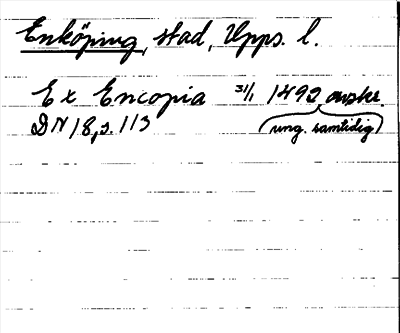 Enköping, stad, Upps. l.
Ex Encopia 31/1 1492 avskr.
DN 18, s. 113 (ung. samtidig)